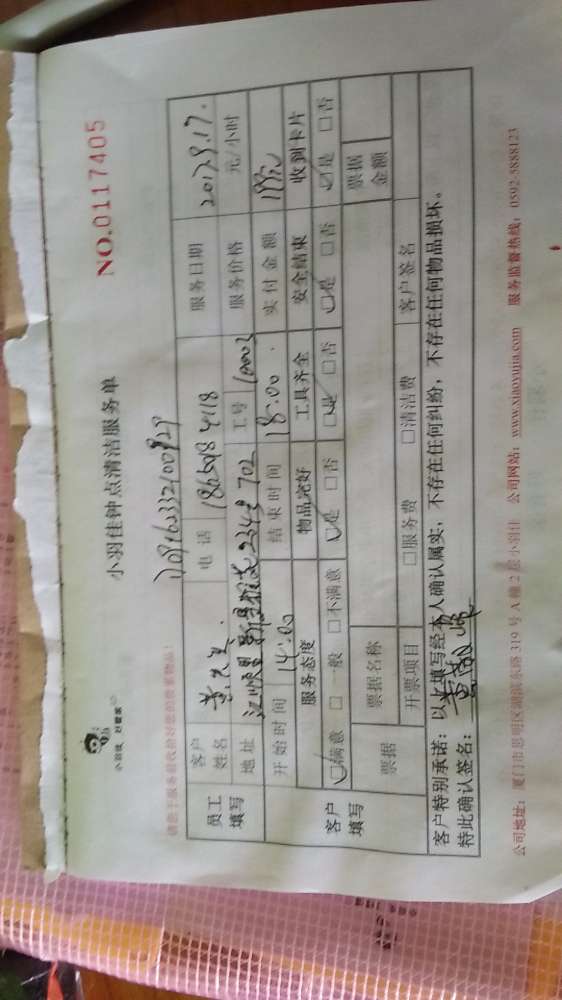 小羽佳 好管家
小羽佳钟点清洁服务单
NO.0117405
请您于服务前收拾好您的贵重物品!
员工填写
客户姓名 黄先生 电话 服务日期 2017.9.17.
地址 2343 702 工号 10002 服务价格 元/小时
开始时间 14:00 结束时间 18:00. 实付金额
客户填写
服务态度 物品完好 工具齐全 安全结束 收到卡片
☑满意 □一般 □不满意 ☑是 □否 ☑是 □否 ☑是 □否 ☑是 □否
票据 票据名称 票据金额
开票项目 □服务费 □清洁费 客户签名
客户特别承诺:以上填写经本人确认属实,不存在任何纠纷,不存在任何物品损坏。
特此确认签名:
公司地址:厦门市思明区湖滨东路 319 号 A 幢 2 层小羽佳 公司网站:www.xiaoyujia.com 服务监督热线:0592-5888123